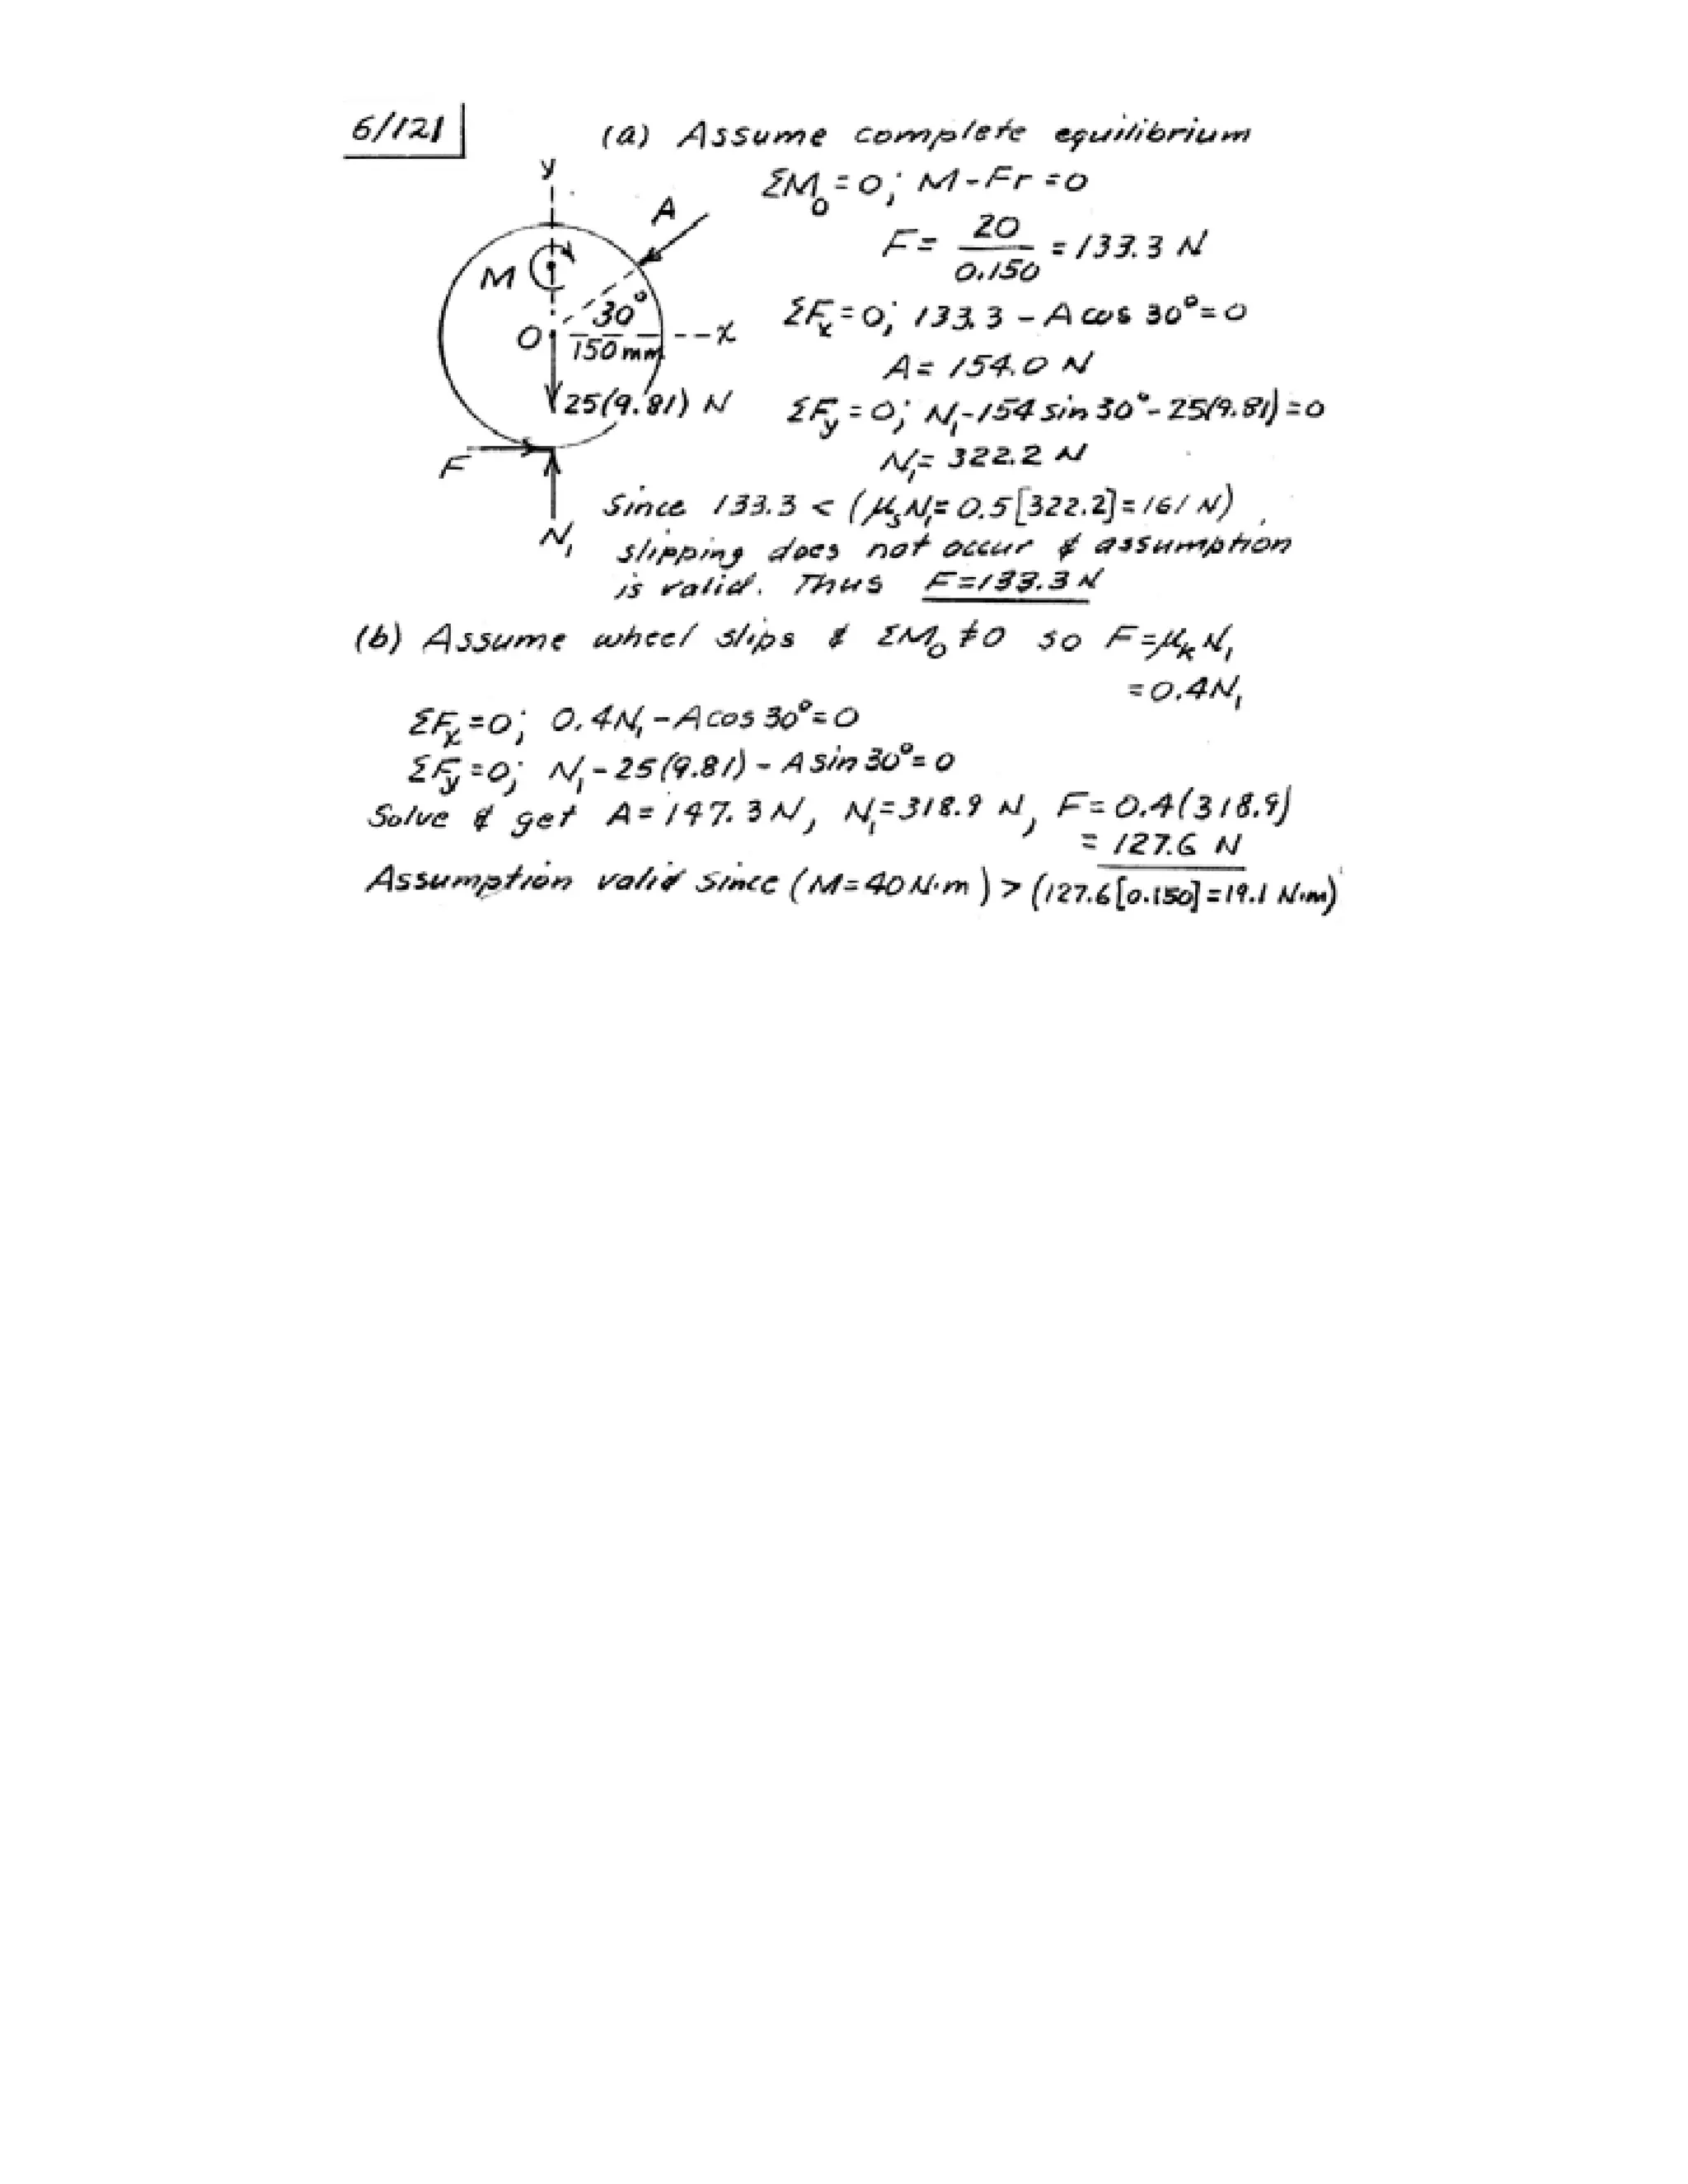 6/121
(a) Assume complete equilibrium
ΣM_O = 0; M - Fr = 0
F = 20/0.150 = 133.3 N
ΣF_x = 0; 133.3 - A cos 30° = 0
A = 154.0 N
ΣF_y = 0; N_1 - 154 sin 30° - 25(9.81) = 0
N_1 = 322.2 N
y
A
M
30°
O
150 mm
x
25(9.81) N
F
N_1
Since 133.3 < (μ_s N_1 = 0.5[322.2] = 161 N)
slipping does not occur & assumption
is valid. Thus F = 133.3 N
(b) Assume wheel slips & ΣM_O ≠ 0 so F = μ_k N_1
= 0.4N_1
ΣF_x = 0; 0.4N_1 - A cos 30° = 0
ΣF_y = 0; N_1 - 25(9.81) - A sin 30° = 0
Solve & get A = 147.3 N, N_1 = 318.9 N, F = 0.4(318.9)
= 127.6 N
Assumption valid since (M = 40 N·m) > (127.6[0.150] = 19.1 N·m)